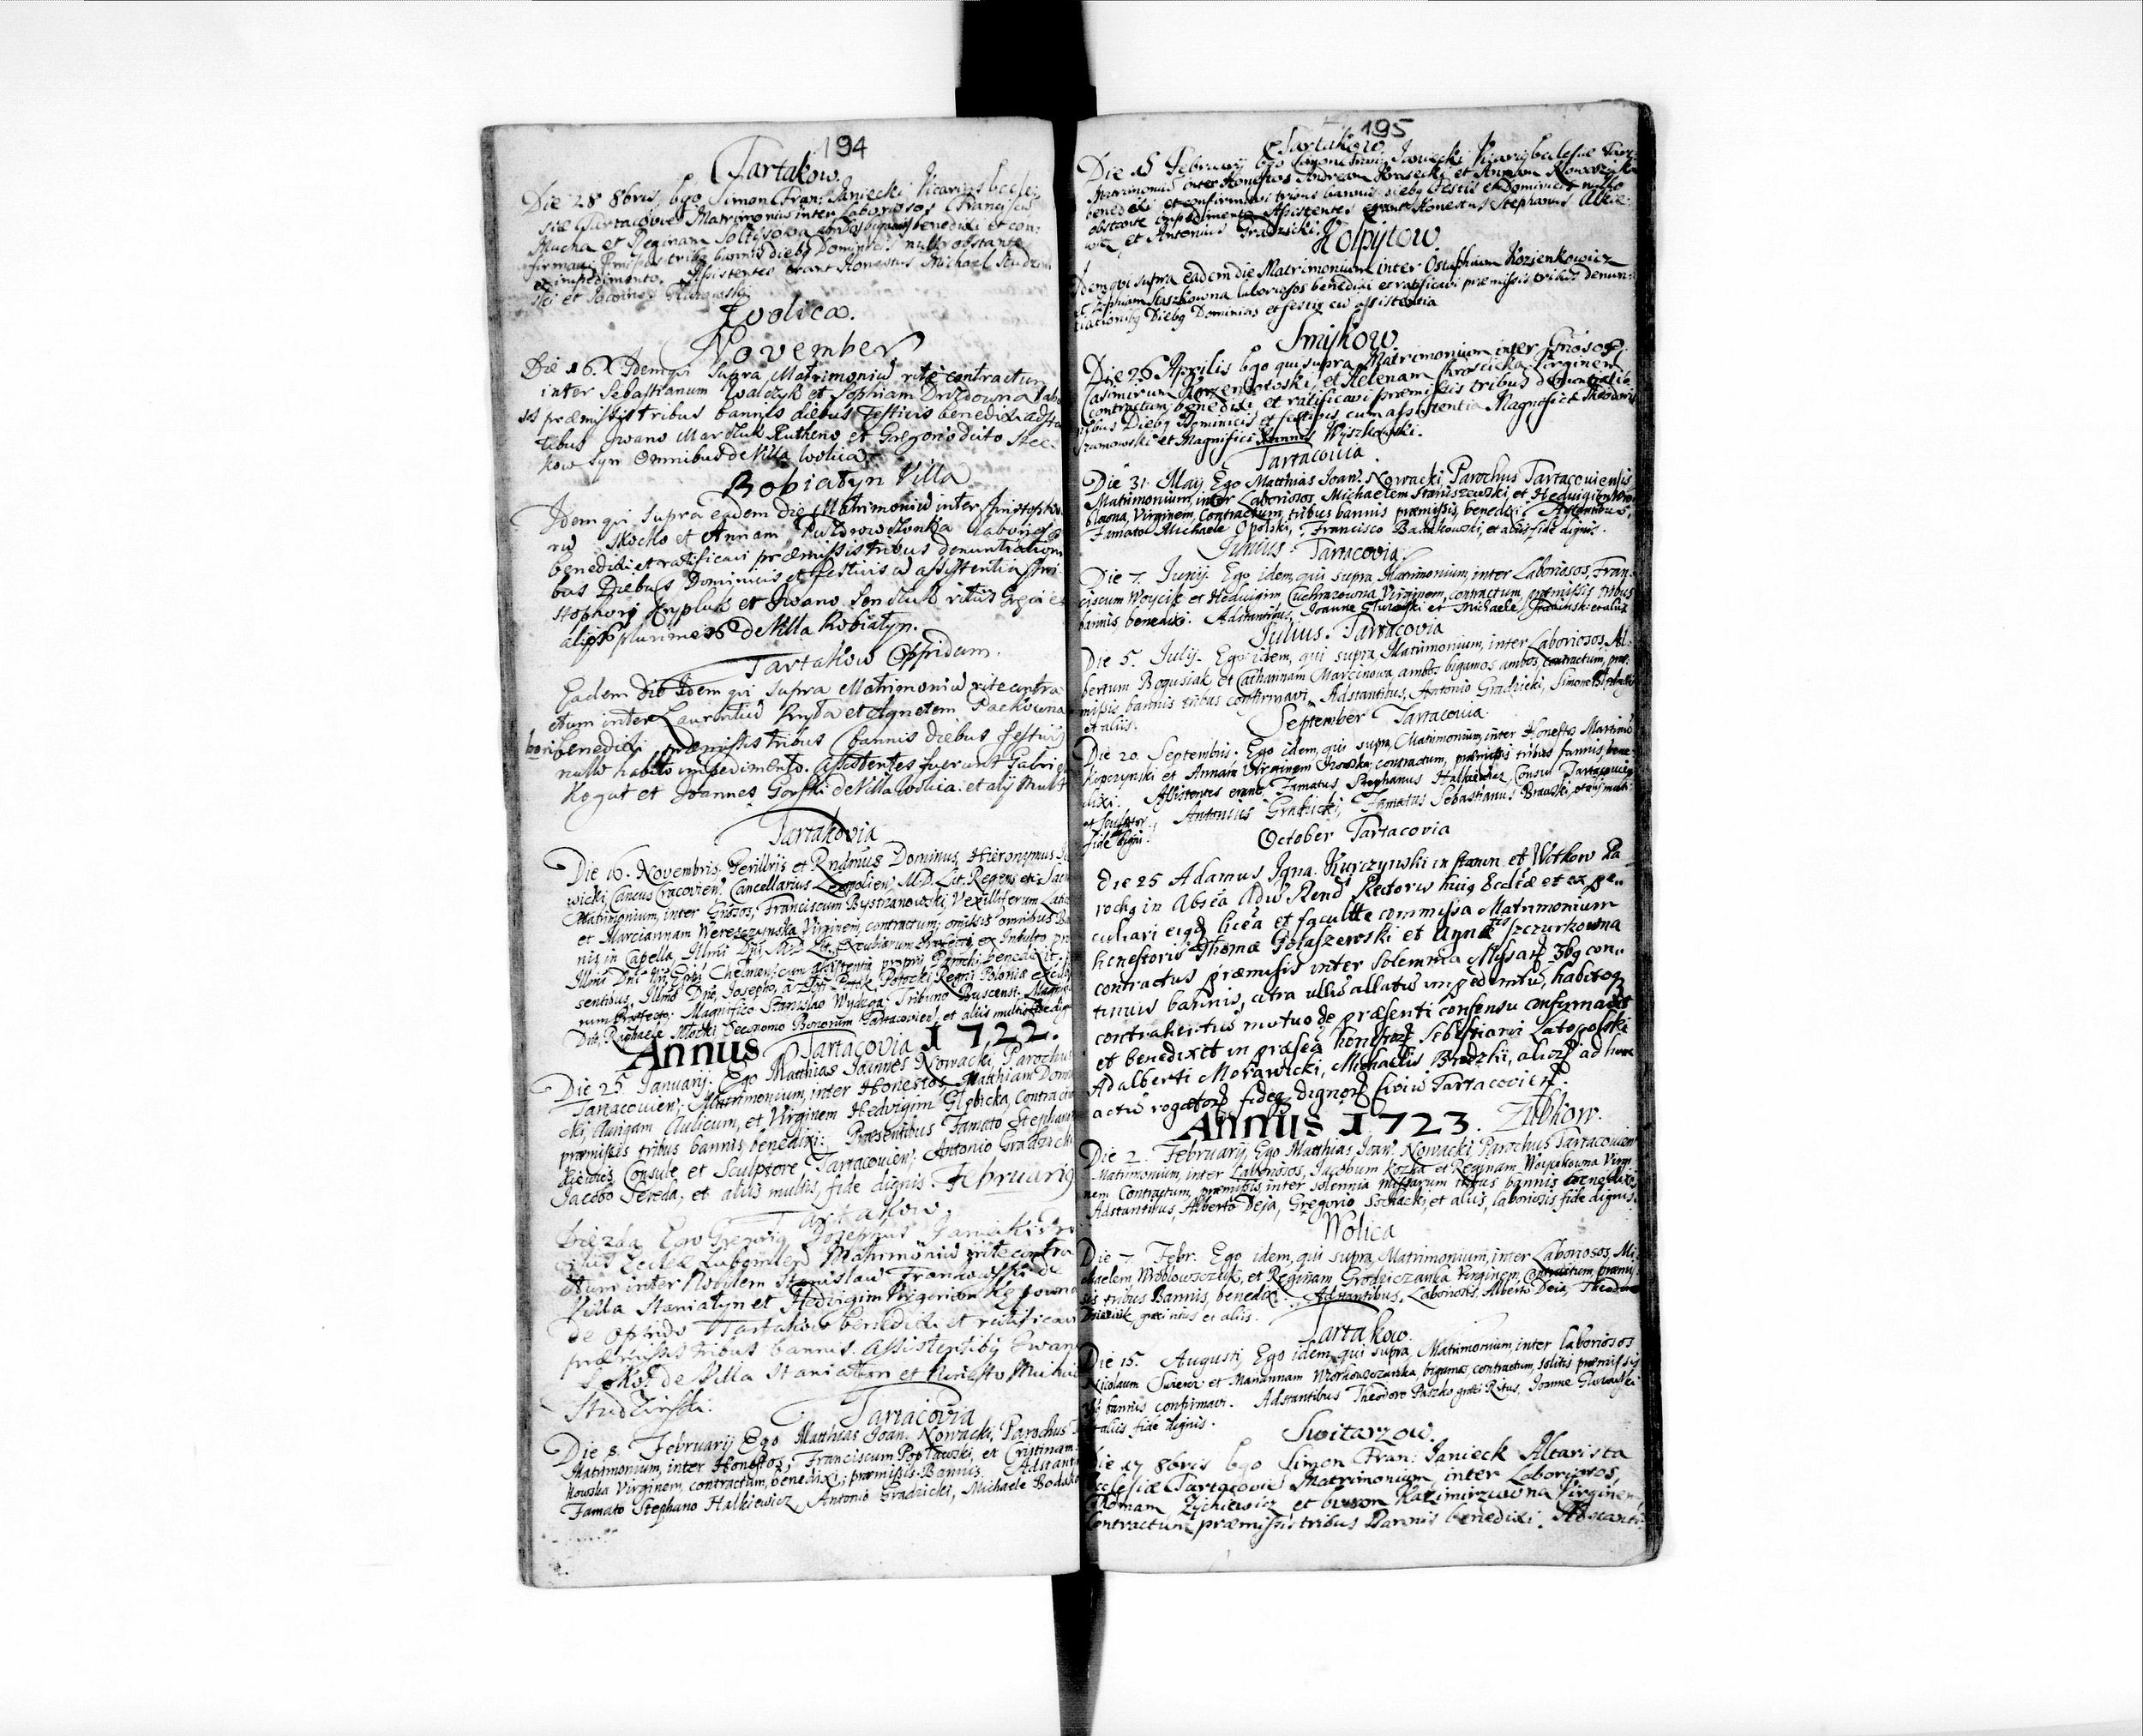 194
Tartakow.
Die 28 8bris, Ego Simon Fran: Janiecki Vicarius Eccle:
siæ Tartacovie Matrimonium inter Laboriosos Franciscū
Mucha et Reginam Soltysowa ambos bigamos benedixi et con:
firmavi præmissis tribus bannis diebg Dominicis nullo obstante
impedimento. Assistentes erant Honestus Michael Studzin
ski et Joannes Glurowski
Wolica.
November
Die 16. X Idem qui supra Matrimoniū rite contractum
inter Sebastianum Walczyk et Sophiam Drozdowna labo
sos præmissis tribus bannis diebus festivis benedixi adsta
tibus Iwano Marcluk Rutheno et Gregorio dicto Szee
kow Syn Omnibus de Villa Wolica
Bobiatyn Villa
Idem qui supra eadem die Matrimoniū inter Christopho
rū Skocko et Annam laborioso
benedixi et ratificavi præmissis tribus denuntiation
bus Diebus Dominicis et festivis cū assistentia Chri
stophori Krypluk et Iwano Sencluk ritus Greci et
alijs plurimis de Villa Bobiatyn.
Tartakow Oppidum.
Eadem die Idem qui supra Matrimoniū rite contra
ctum inter Laurentiū Ryta et Agnetem Packowna
benedixi præmissis tribus bannis diebus festivis
nullo habito impedimento. assistentes fuerunt Gabriel
Kogut et Joannes Gorski de Villa Wolica. et alij mult
Tartakovia
Die 16. Novembris. Perillris et Rndmus Dominus, Hieronymus
wicki, Cancus Cracovien: Cancellarius Leopolien: M.D. Lit. Regens etc.
Matrimonium, inter Gnosos, Franciscum Bystrzanowski, Vexilliferum
et Mariannam Wereszczynska Virginem, contractum, omissis omnibus Ba
nis, in Capella, Illmi Dni, M.D. Lit. Excubiarum Præfecti, ex Indulto
Illmi Dni, Chelmen: cum assistentia proprii Parochi, benedixit.
sentibus, Illmo Dno, Josepho, a Potok Potocki, Regni Poloniæ excub
rum Præfecto: Magnifico Stanislao Wydzga: Tribuno Buscensi: Magni
Dno, Raphaele Mlocki, Œconomo Bonorum Tartacovien: et aliis multis fide dig
Annus Tartacovia 1722.
Die 25 Januarij. Ego Matthias Joannes Nowacki, Parochus
Tartacovien: Matrimonium, inter Honestos, Matthiam Dom
cki, Aurigam Aulicum, et Virginem Hedvigim Glębicka, contractu
præmissis tribus bannis, benedixi: Præsentibus Famato Stephano
kiewicz, Consule et Sculptore Tartacovien: Antonio Gradzicki
Jacobo Sereda, et aliis multis, fide dignis. Februarig
Tartakow.
Die 2da Ego Gregorig Josephus
Eccłæ Lubomlen Matrimoniū rite contra
ctum inter Nobilem Stanislaū Frankowski de
Villa Staniatyn et Hedvigim Virginem
de Oppido Tartakow benedixi et ratificavi
præmissis tribus bannis. Assistentibg Iwan
Sokoł de Villa Staniatyn et Honesto Michae
Studzinski.
Tartacovia
Die 8. Februarij Ego Matthias Joan: Nowacki, Parochus T
Matrimonium, inter Honestos, Franciscum Popławski, et Cristinam
kowska Virginem, contractum, benedixi; præmissis Bannis. Adstant
Famato Stephano Halkiewicz, Antonio Gradzicki, Michaele Bodak
195
Tartakow.
Die 15 Februarij Ego Simon Fran: Janiecki Vicarig Ecclesiæ Tart
Matrimoniū inter Honestos Andream et Annam
benedixi et confirmavi tribus bannis diebg Festis et Dominicis nullo
obstante impedimento Assistentes erant Honestus Stephanus Alkie:
wicz et Antonius Gradzicki.
Kolpytow.
Idem qui supra Eadem die Matrimonium inter Ostaphium Kozienkowicz
et Zophiam Staszkowna laboriosos benedixi et ratificavi præmissis tribus denun:
tiationibg Diebg Dominicis et festis cū assistentia
Smykow
Die 26 Aprilis Ego qui supra Matrimonium inter Gnosos
Casimirum et Helenam Virginem
contractum, benedixi et ratificavi præmissis tribus denuntiatio
nibus Diebg Dominicis et festivis, cum assistentia Magnifici Theodori
Szamowski et Magnifici Joannis Wyszkowski.
Tartacovia.
Die 31. Maij Ego Matthias Joan: Nowacki, Parochus Tartacoviensis
Matrimonium, inter Laboriosos, Michaelem Staniszewski, et Hedvigim
Virginem, Contractum, tribus bannis præmissis, benedixi: Adstantibus,
Famato Michaele Opolski, Francisco Badakowski, et aliis fide dignis.
Junius. Tartacovia.
Die 7. Junij. Ego idem, qui supra, Matrimonium, inter Laboriosos, Fran:
ciscum Woycik et Hedvigim Cuchrazowna Virginem, contractum, præmissis tribus
bannis, benedixi. Adstantibus, Joanne Glurowski et Michaele et aliis
Julius. Tartacovia
Die 5. Julij. Ego idem, qui supra, Matrimonium, inter Laboriosos, Al:
bertum Bogusiak et Catharinam Marcinowa, ambos bigamos ambos, contractum, præ:
missis bannis tribus confirmavi. Adstantibus, Antonio Gradzicki, Simone
et aliis.
September Tartacovia
Die 20. Septembris. Ego idem, qui supra, Matrimonium, inter Honestos Martinū
Kopczynski et Annam Virginem contractum, præmissis tribus bannis, bene
dixi. Assistentes erant, Famatus Stephanus Halkiewicz, Consul Tartacovien
et Sculptor., Antonius Gradzicki, Famatus Sebastianus et alij multi
fide digni.
October Tartacovia
Die 25 Adamus Igna. Kurczynski in et Witkow Pa
rochg in Absća Adm Rend Rectoris huig Ecclæ et ex pe..
culiari eigd licća et facultte commissa Matrimonium
honestoris Thomæ Gołaszewski et Annæ Szczurkowna
contractus præmisis inter Solemnia Missarū 3bg con..
tinuis bannis, citra ullū allatū impedimtū, habitoq
contrahentiū mutuo de præsenti consensu confirmavit
et benedixit in præseā Sebastiani Latoszki
Adalberti Morawicki, Michaelis Brodzki, aliorū ad hunc
actū rogatorū fideq dignorū Civiū Tartacovien.
Annus 1723. Zubkow.
Die 2. Februarij, Ego Matthias Joan: Nowacki Parochus Tartacovien
Matrimonium, inter Laboriosos, Jacobum Kozka et Reginam Woycikowna Virgi
nem Contractum, præmissis inter solennia Missarum tribus bannis benedixi.
Adstantibus, Alberto Deja, Gregorio Sochacki, et aliis, laboriosis fide dignis.
Wolica
Die 7. Febr. Ego idem, qui supra, Matrimonium, inter Laboriosos, Mi
chaelem Wroblowszczyk, et Reginam Grodziczanka Virginem, contractum, præmis
sis tribus Bannis, benedixi. Adstantibus, Laboriosis, Alberto Deia, Theodoro
græci ritus et aliis.
Tartakow.
Die 15. Augusti Ego idem, qui supra, Matrimonium, inter laboriosos
Nicolaum et Mariannam bigamos, contractum, solitis præmissis
3bg bannis confirmavi. Adstantibus Theodoro Paszko græci Ritus, Joanne Glurowski
et aliis fide dignis.
Switarzow.
Die 17 8bris Ego Simon Fran: Janieck Altarista
Ecclesiæ Tartacovie Matrimonium inter Laboriosos,
Thomam Zychiewicz et Kazimirzowna Virginem
Contractum præmissis tribus Bannis benedixi. Adstanti: